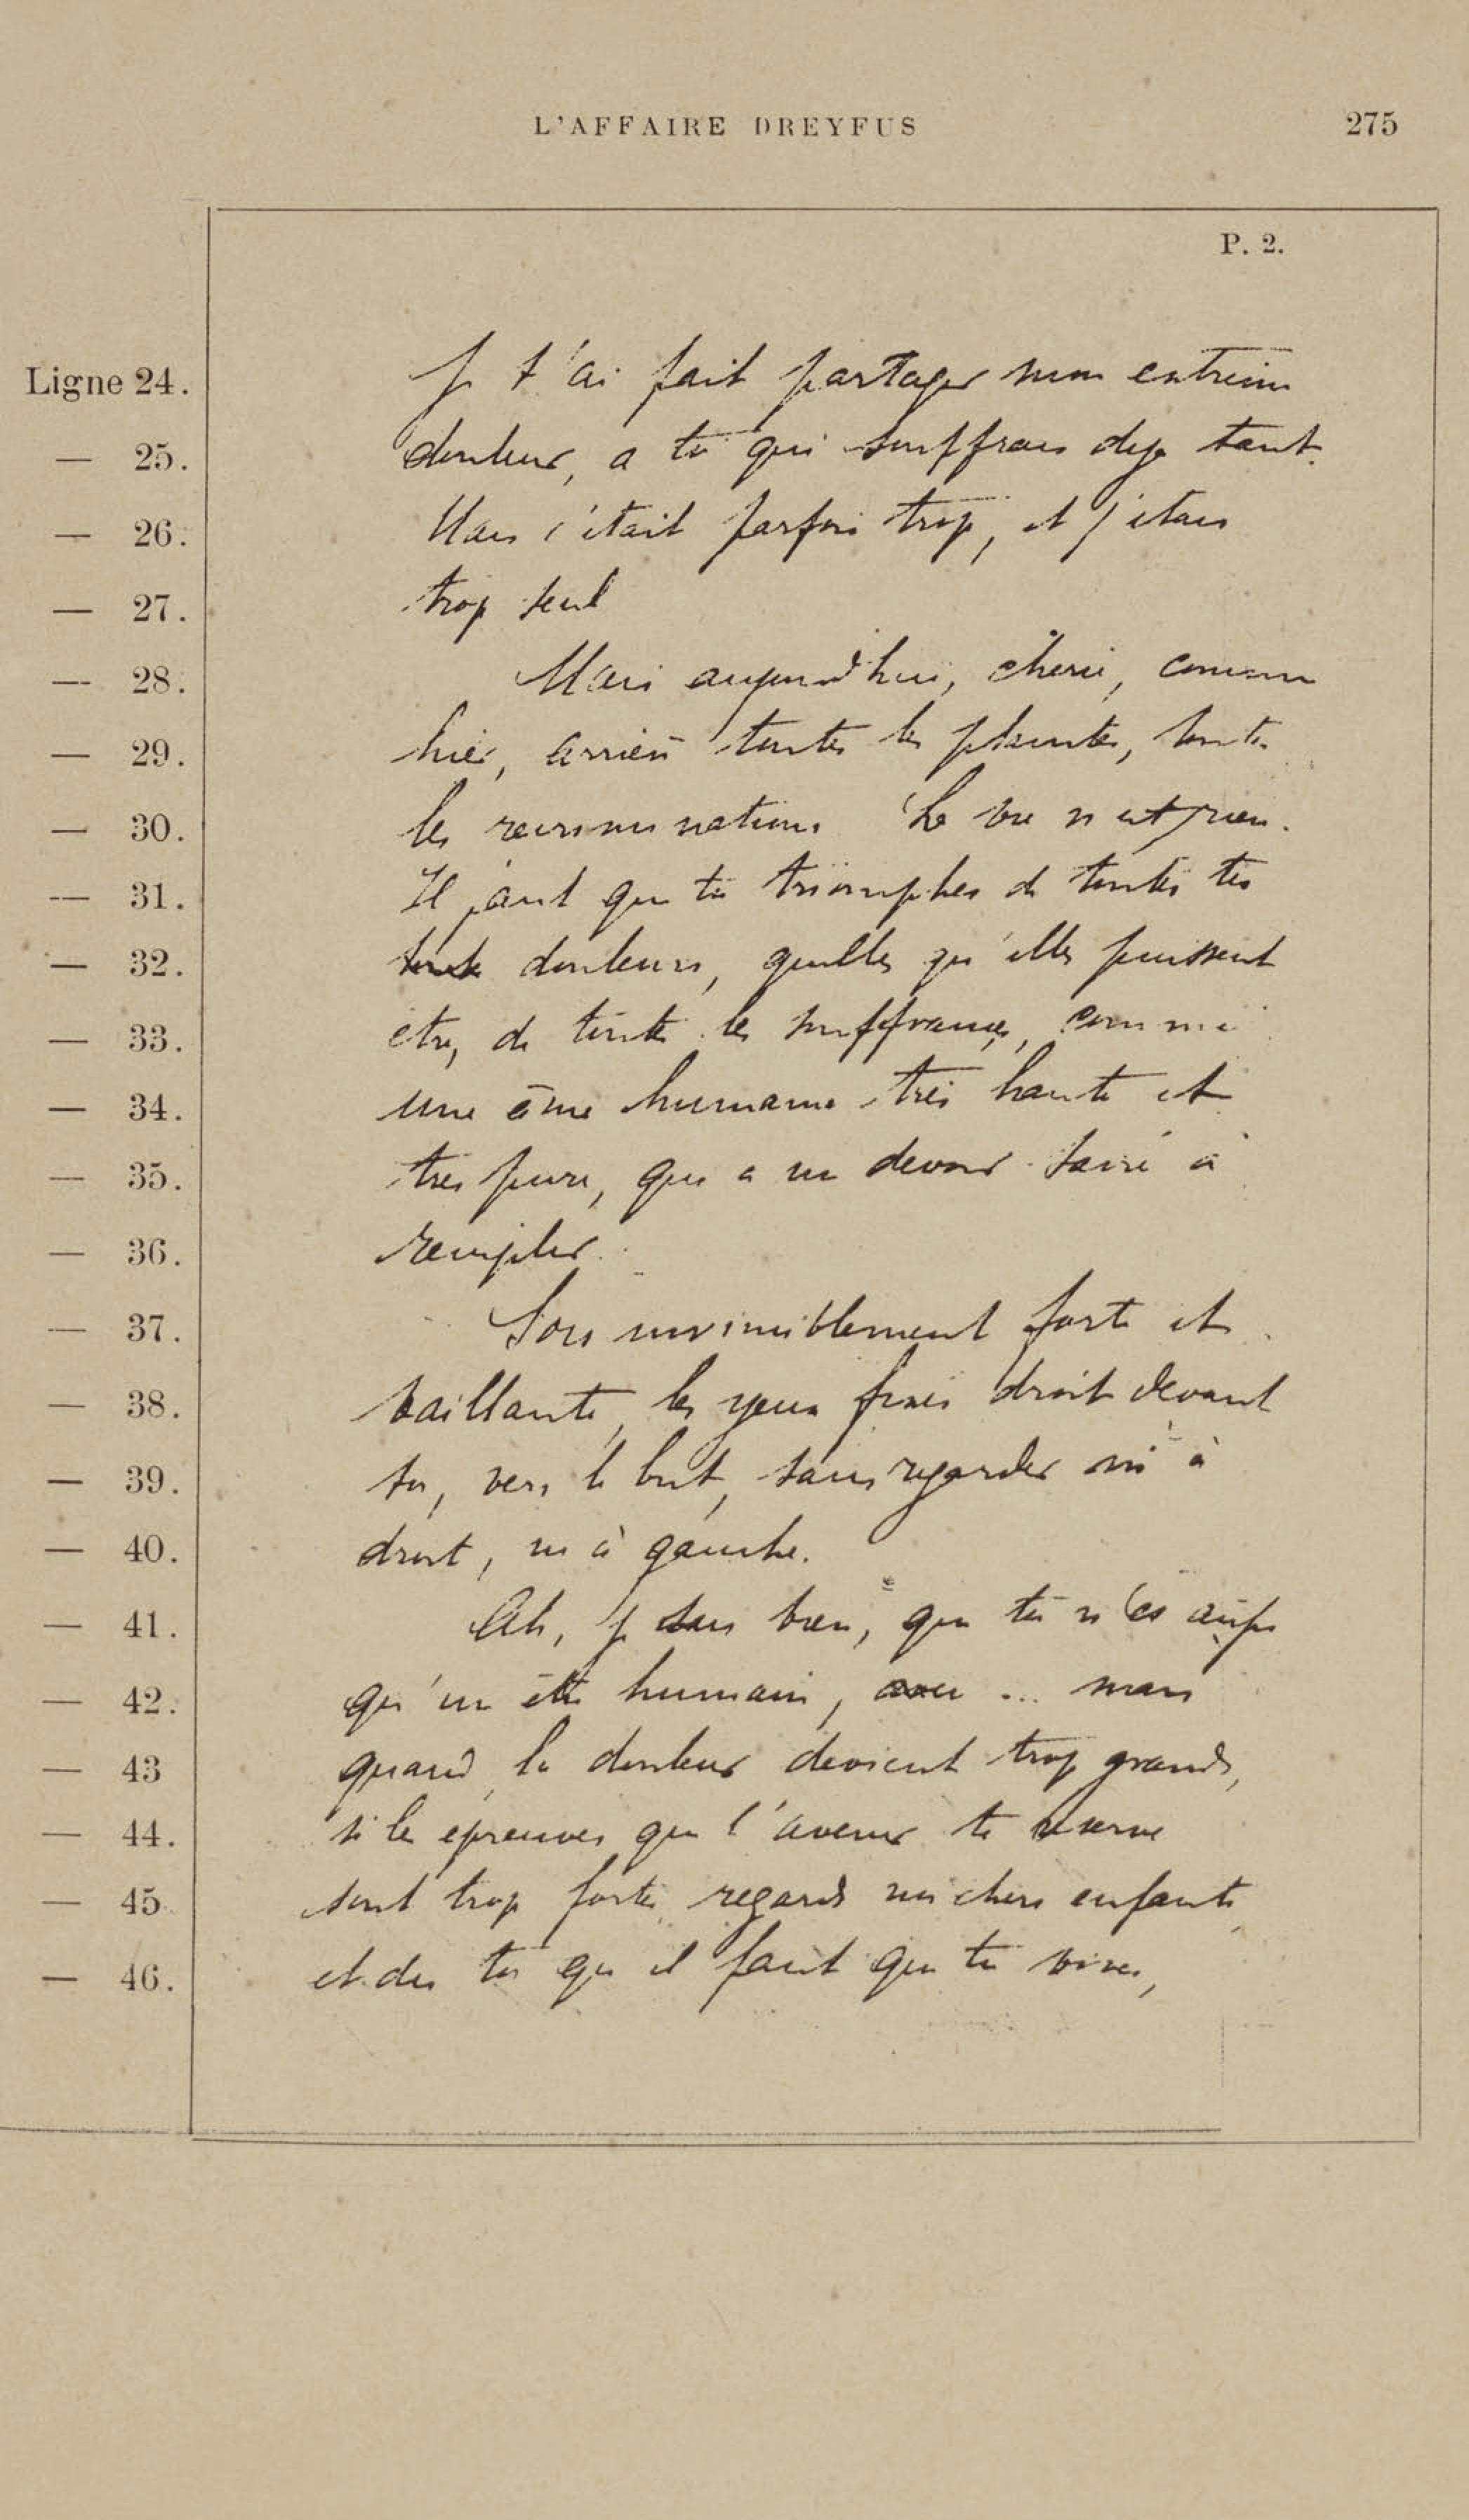 L'AFFAIRE DREYFUS 275
P. 2.
Ligne 24. Je t'ai fait partager mon extreme
— 25. douleur, a toi qui souffrais deja tant.
— 26. Mais c'était parfois trop, et j'étais
— 27. trop seul
— 28. Mais aujourd'hui, cherie, comme
— 29. hier, arriere toutes les plaintes, toutes
— 30. les recriminations. La vie n'est rien.
— 31. Il faut que tu triomphes de toutes tes
— 32. douleurs, quelles qu'elles puissent
— 33. etre, de toutes les souffrances, comme
— 34. une âme humaine très haute et
— 35. très pure, qui a un devoir sacré à
— 36. remplir.
— 37. Sois invinciblement forte et
— 38. vaillante, les yeux fixés droit devant
— 39. toi, vers le but, sans regarder ni à
— 40. droite, ni à gauche.
— 41. Ah, je sais bien, que tu n'es aussi
— 42. qu'un être humain, ... mais
— 43 quand la douleur devient trop grande,
— 44. si les epreuves que l'avenir te reserve
— 45. sont trop fortes regarde nos chers enfants
— 46. et dis toi qu'il faut que tu vives,